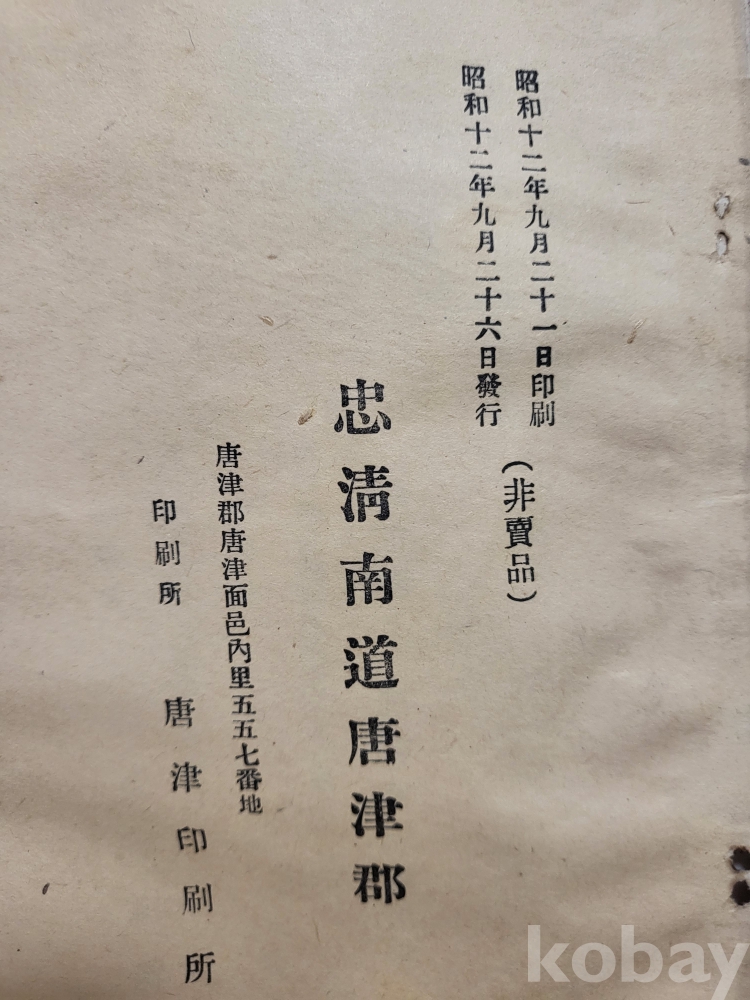 昭和十二年九月二十一日印刷
昭和十二年九月二十六日發行
(非賣品)
忠淸南道唐津郡
唐津郡唐津面邑內里五五七番地
印刷所 唐津印刷所
kobay